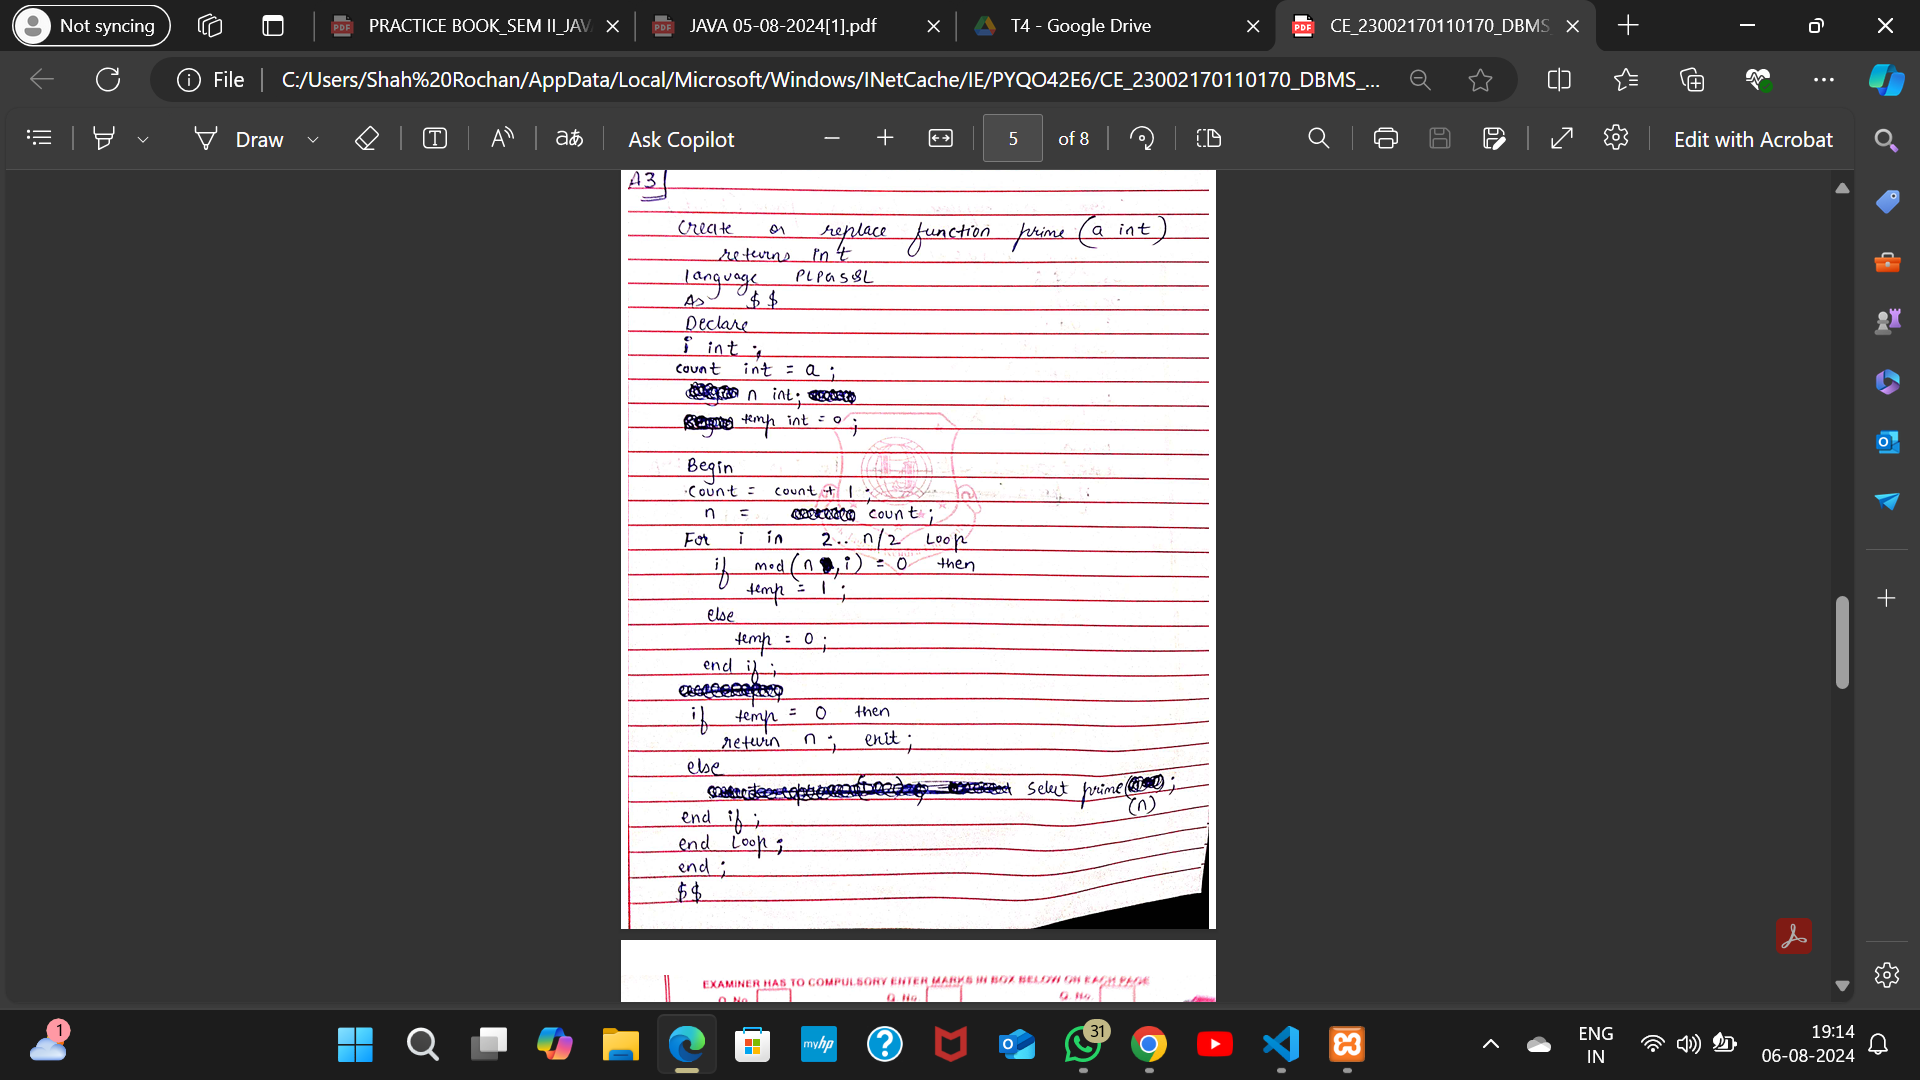 Not syncing
PRACTICE BOOK_SEM II_JAV
JAVA 05-08-2024[1].pdf
T4 - Google Drive
CE_23002170110170_DBMS_
File
C:/Users/Shah%20Rochan/AppData/Local/Microsoft/Windows/INetCache/IE/PYQO42E6/CE_23002170110170_DBMS_...
Draw
aあ
Ask Copilot
5 of 8
Edit with Acrobat
A3
Create or replace function prime (a int)
returns int
language PLPGSQL
As $$
Declare
i int ;
count int = a ;
n int;
temp int = 0 ;
Begin
count = count + 1 ;
n = count ;
For i in 2.. n/2 Loop
if mod (n , i) = 0 then
temp = 1 ;
else
temp = 0 ;
end if ;
if temp = 0 then
return n ; exit ;
else
select prime ;
(n)
end if ;
end Loop ;
end ;
$$
EXAMINER HAS TO COMPULSORY ENTER MARKS IN BOX BELOW ON EACH PAGE
Q. No. Q. No. Q. No.
1
myhp
31
ENG
IN
19:14
06-08-2024